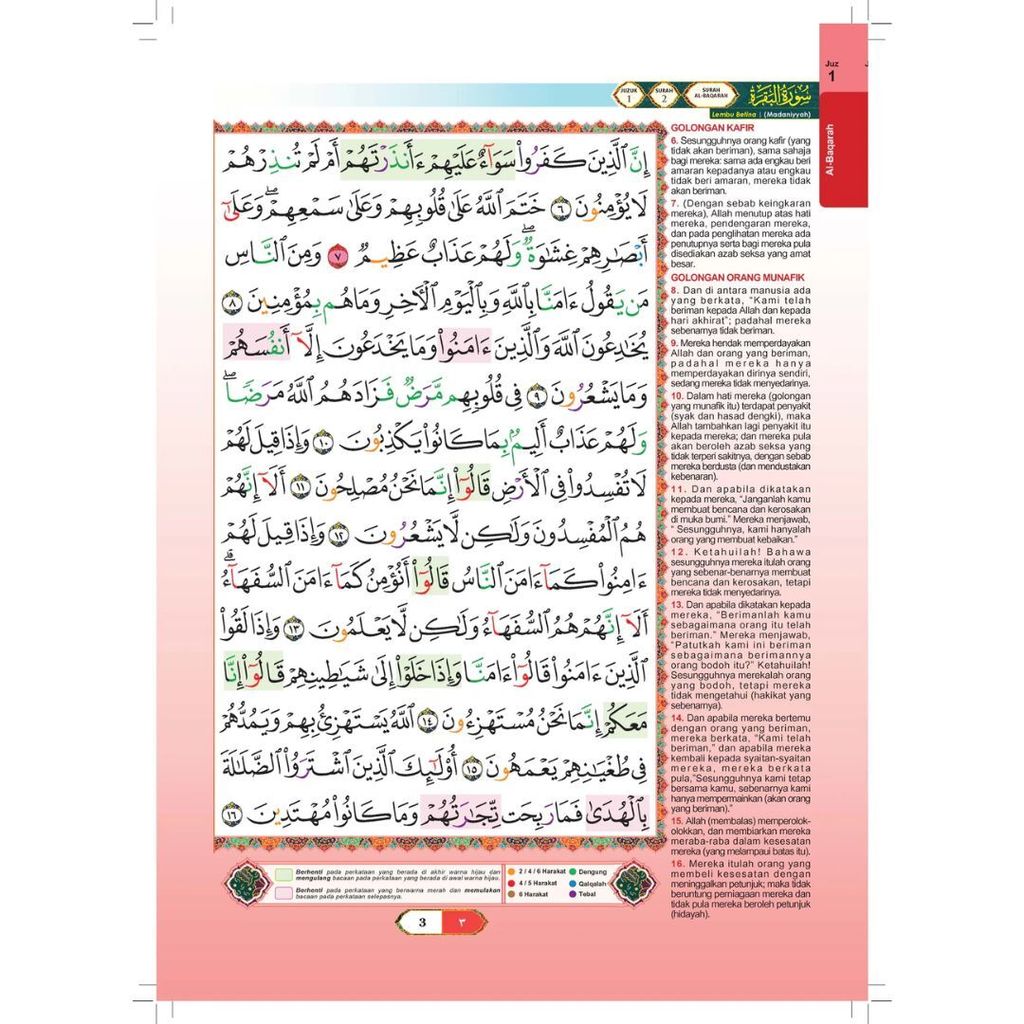 Juz
1
Al-Baqarah
JUZUK
1
SURAH
2
SURAH
AL-BAQARAH
سُورَةُ البَقَرَة
Lembu Betina | (Madaniyyah)
إِنَّ ٱلَّذِينَ كَفَرُوا۟ سَوَآءٌ عَلَيْهِمْ ءَأَنذَرْتَهُمْ أَمْ لَمْ تُنذِرْهُمْ
لَا يُؤْمِنُونَ ٦ خَتَمَ ٱللَّهُ عَلَىٰ قُلُوبِهِمْ وَعَلَىٰ سَمْعِهِمْ ۖ وَعَلَىٰٓ
أَبْصَـٰرِهِمْ غِشَـٰوَةٌ ۖ وَلَهُمْ عَذَابٌ عَظِيمٌ ٧ وَمِنَ ٱلنَّاسِ
مَن يَقُولُ ءَامَنَّا بِٱللَّهِ وَبِٱلْيَوْمِ ٱلْـَٔاخِرِ وَمَا هُم بِمُؤْمِنِينَ ٨
يُخَـٰدِعُونَ ٱللَّهَ وَٱلَّذِينَ ءَامَنُوا۟ وَمَا يَخْدَعُونَ إِلَّآ أَنفُسَهُمْ
وَمَا يَشْعُرُونَ ٩ فِى قُلُوبِهِم مَّرَضٌ فَزَادَهُمُ ٱللَّهُ مَرَضًا ۖ
وَلَهُمْ عَذَابٌ أَلِيمٌۢ بِمَا كَانُوا۟ يَكْذِبُونَ ١٠ وَإِذَا قِيلَ لَهُمْ
لَا تُفْسِدُوا۟ فِى ٱلْأَرْضِ قَالُوٓا۟ إِنَّمَا نَحْنُ مُصْلِحُونَ ١١ أَلَآ إِنَّهُمْ
هُمُ ٱلْمُفْسِدُونَ وَلَـٰكِن لَّا يَشْعُرُونَ ١٢ وَإِذَا قِيلَ لَهُمْ
ءَامِنُوا۟ كَمَآ ءَامَنَ ٱلنَّاسُ قَالُوٓا۟ أَنُؤْمِنُ كَمَآ ءَامَنَ ٱلسُّفَهَآءُ ۗ
أَلَآ إِنَّهُمْ هُمُ ٱلسُّفَهَآءُ وَلَـٰكِن لَّا يَعْلَمُونَ ١٣ وَإِذَا لَقُوا۟
ٱلَّذِينَ ءَامَنُوا۟ قَالُوٓا۟ ءَامَنَّا وَإِذَا خَلَوْا۟ إِلَىٰ شَيَـٰطِينِهِمْ قَالُوٓا۟ إِنَّا
مَعَكُمْ إِنَّمَا نَحْنُ مُسْتَهْزِءُونَ ١٤ ٱللَّهُ يَسْتَهْزِئُ بِهِمْ وَيَمُدُّهُمْ
فِى طُغْيَـٰنِهِمْ يَعْمَهُونَ ١٥ أُو۟لَـٰٓئِكَ ٱلَّذِينَ ٱشْتَرَوُا۟ ٱلضَّلَـٰلَةَ
بِٱلْهُدَىٰ فَمَا رَبِحَت تِّجَـٰرَتُهُمْ وَمَا كَانُوا۟ مُهْتَدِينَ ١٦
GOLONGAN KAFIR
6. Sesungguhnya orang kafir (yang
tidak akan beriman), sama sahaja
bagi mereka: sama ada engkau beri
amaran kepadanya atau engkau
tidak beri amaran, mereka tidak
akan beriman.
7. (Dengan sebab keingkaran
mereka), Allah menutup atas hati
mereka, pendengaran mereka,
dan pada penglihatan mereka ada
penutupnya serta bagi mereka pula
disediakan azab seksa yang amat
besar.
GOLONGAN ORANG MUNAFIK
8. Dan di antara manusia ada
yang berkata, "Kami telah
beriman kepada Allah dan kepada
hari akhirat"; padahal mereka
sebenarnya tidak beriman.
9. Mereka hendak memperdayakan
Allah dan orang yang beriman,
padahal mereka hanya
memperdayakan dirinya sendiri,
sedang mereka tidak menyedarinya.
10. Dalam hati mereka (golongan
yang munafik itu) terdapat penyakit
(syak dan hasad dengki), maka
Allah tambahkan lagi penyakit itu
kepada mereka; dan mereka pula
akan beroleh azab seksa yang
tidak terperi sakitnya, dengan sebab
mereka berdusta (dan mendustakan
kebenaran).
11. Dan apabila dikatakan
kepada mereka, "Janganlah kamu
membuat bencana dan kerosakan
di muka bumi." Mereka menjawab,
" Sesungguhnya, kami hanyalah
orang yang membuat kebaikan."
12. Ketahuilah! Bahawa
sesungguhnya mereka itulah orang
yang sebenar-benarnya membuat
bencana dan kerosakan, tetapi
mereka tidak menyedarinya.
13. Dan apabila dikatakan kepada
mereka, "Berimanlah kamu
sebagaimana orang itu telah
beriman." Mereka menjawab,
"Patutkah kami ini beriman
sebagaimana berimannya
orang bodoh itu?" Ketahuilah!
Sesungguhnya merekalah orang
yang bodoh, tetapi mereka
tidak mengetahui (hakikat yang
sebenarnya).
14. Dan apabila mereka bertemu
dengan orang yang beriman,
mereka berkata, "Kami telah
beriman," dan apabila mereka
kembali kepada syaitan-syaitan
mereka, mereka berkata
pula,"Sesungguhnya kami tetap
bersama kamu, sebenarnya kami
hanya mempermainkan (akan orang
yang beriman)."
15. Allah (membalas) memperolok-
olokkan, dan membiarkan mereka
meraba-raba dalam kesesatan
mereka (yang melampaui batas itu).
16. Mereka itulah orang yang
membeli kesesatan dengan
meninggalkan petunjuk; maka tidak
beruntung perniagaan mereka dan
tidak pula mereka beroleh petunjuk
(hidayah).
Berhenti pada perkataan yang berada di akhir warna hijau dan
mengulang bacaan pada perkataan yang berada di awal warna hijau.
Berhenti pada perkataan yang berwarna merah dan memulakan
bacaan pada perkataan selepasnya.
2 / 4 / 6 Harakat
Dengung
4 / 5 Harakat
Qalqalah
6 Harakat
Tebal
3
٣